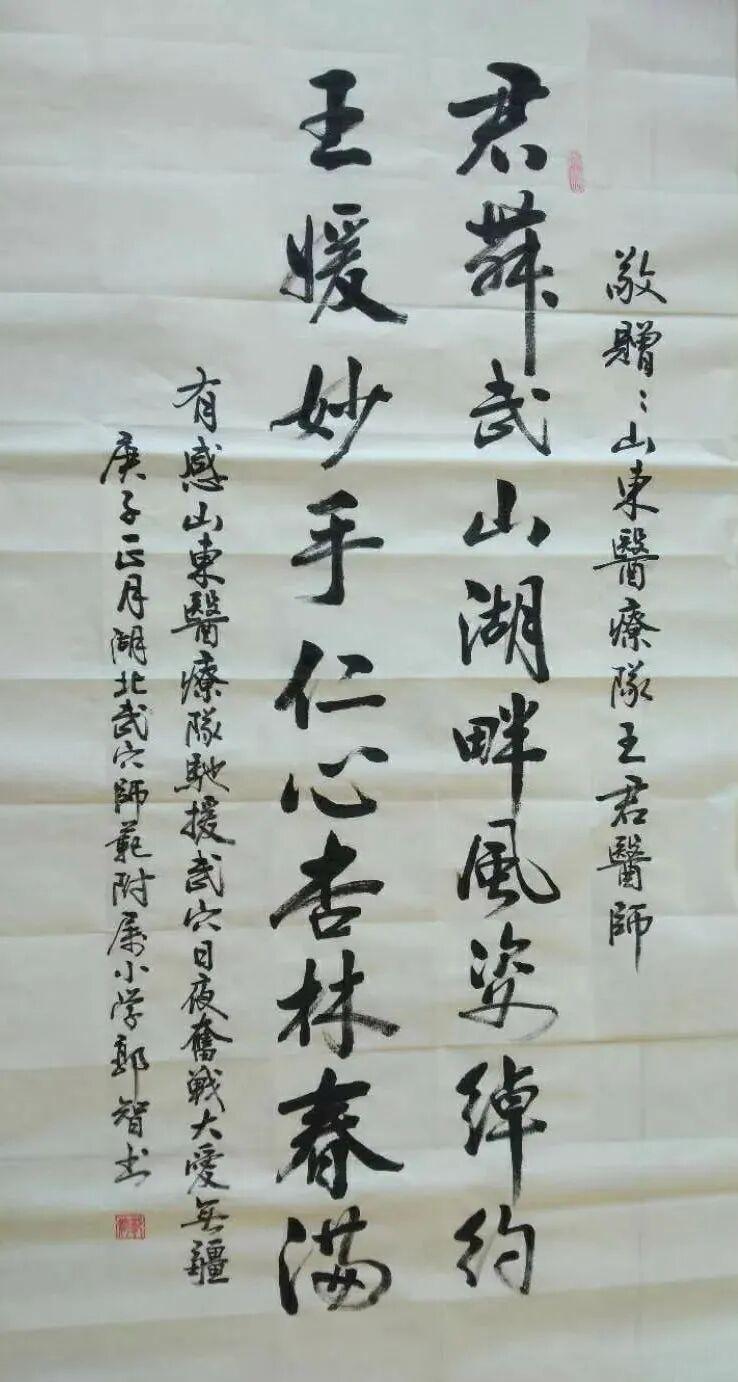 敬贈：山東醫療隊王君醫師
君舞武山湖畔風姿綽約
王媛妙手仁心杏林春滿
有感山東醫療隊馳援武穴日夜奮戰大愛無疆
庚子正月湖北武穴師範附属小学郭智书